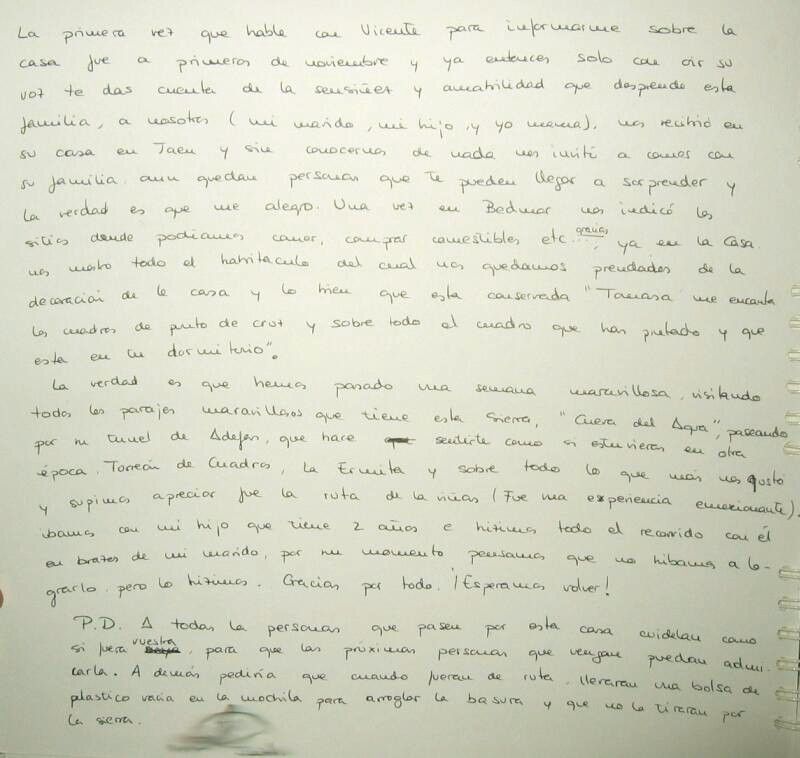 La primera vez que hable con Vicente para informarme sobre la
casa fue a primeros de noviembre y ya entonces solo con oir su
voz te das cuenta de la sensillez y amabilidad que desprende esta
familia, a nosotros (mi marido, mi hijo, y yo mama), nos recibió en
su casa en Jaen y sin conocernos de nada nos invitó a comer con
su familia. aun quedan personas que te pueden llegar a sorprender y
la verdad es que me alegro. Una vez en Bedmar nos indicó los
sitios donde podiamos comer, comprar comestibles etc... gracias ya en la casa
nos mostro todo el habitaculo del cual nos quedamos prendados de la
decoración de la casa y lo bien que esta conservada "Tomasa me encanta
los cuadros de punto de cruz y sobre todo el cuadro que has pintado y que
esta en tu dormitorio".
La verdad es que hemos pasado una semana maravillosa, visitando
todos los parajes maravillosos que tiene esta Sierra, "Cueva del Agua", paseando
por su tunel de Adefas, que hace sentirte como si estuvieras en otra
época, Torreón de Cuadros, la Ermita y sobre todo lo que más nos gustó
y supimos apreciar fue la ruta de la viñas (Fue una experiencia emocionante).
ibamos con mi hijo que tiene 2 años e hizimos todo el recorrido con él
en brazos de mi marido, por un momento pensamos que no hibamos a lo-
grarlo, pero lo hizimos. Gracias por todo. ¡Esperamos volver!
P.D. A todas la personas que pasen por esta casa cuidelan como
si fuera vuestra, para que las próximas personas que vengan puedan admi
carla. A demás pediría que cuando fueran de ruta, llevaran una bolsa de
plastico vacia en la mochila para arroglar la basura y que no la tiraran por
la sierra.